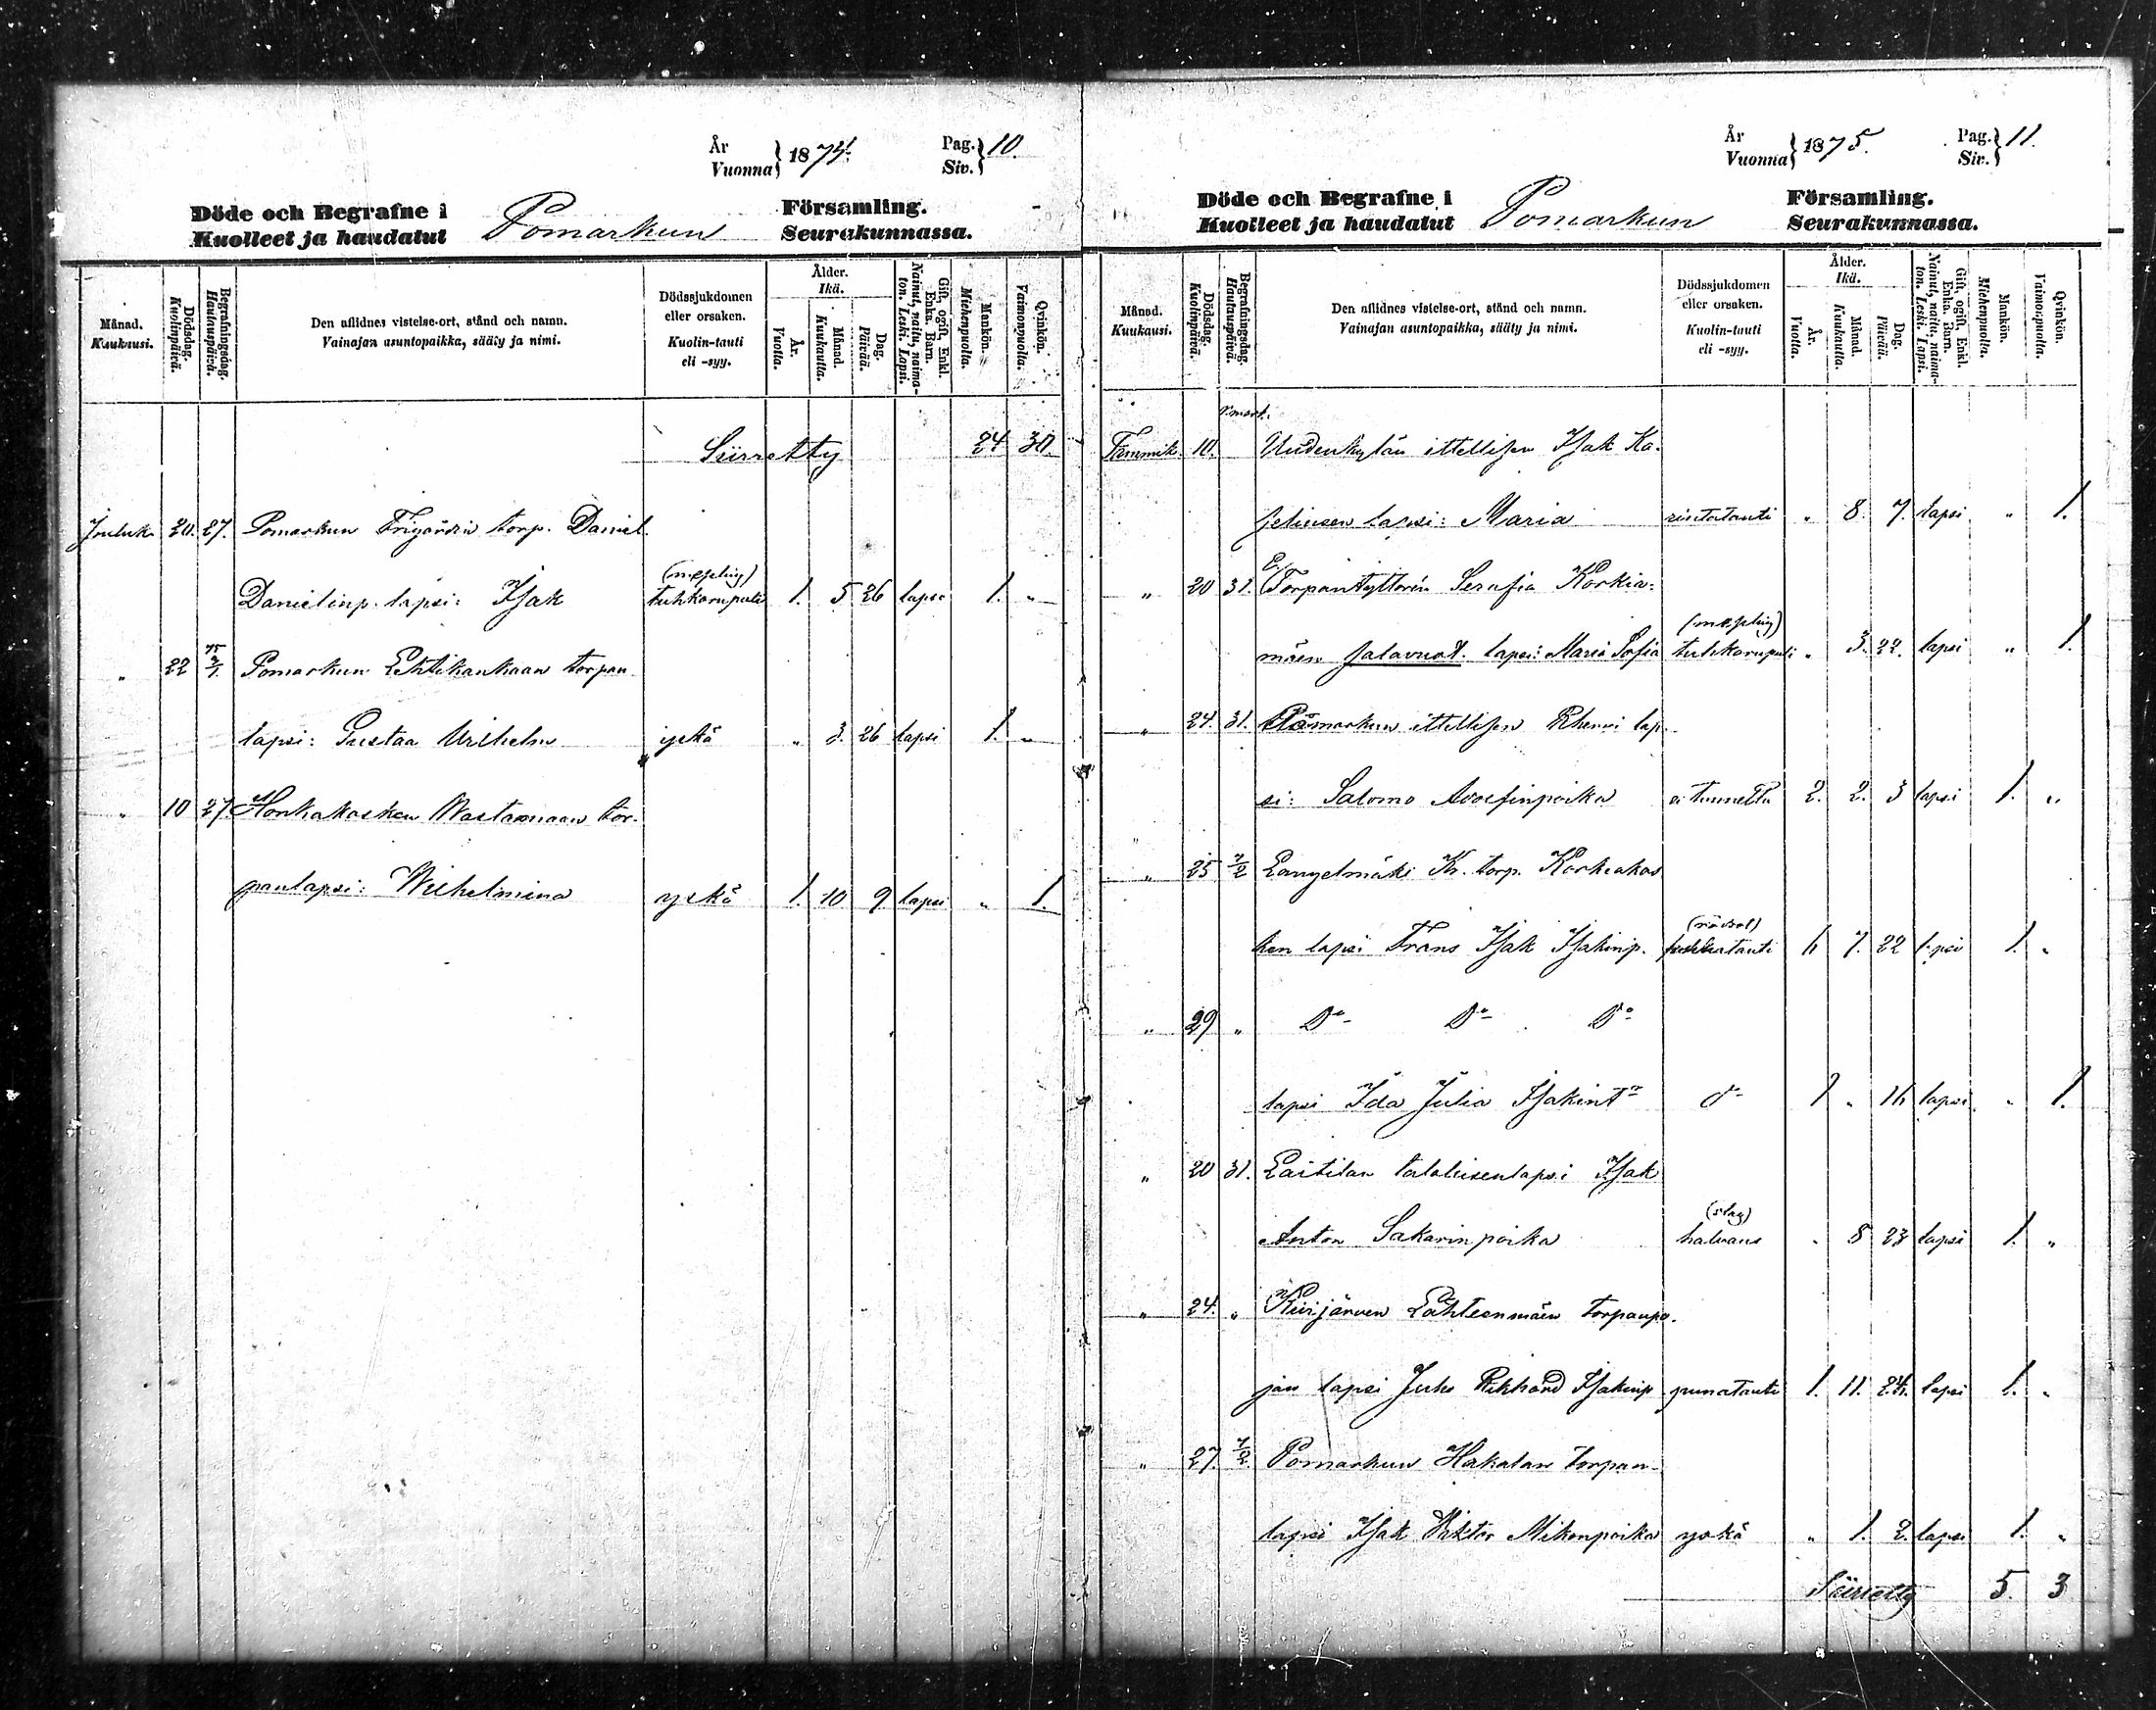 År
Vuonna } 1874. Pag.
Siv. } 10.
Döde och Begrafne i
Kuolleet ja haudatut Pomarkun Församling.
Seurakunnassa.
Månad. Kuukausi. Dödsdag. Kuolinpäivä. Begrafningsdag. Hautauspäivä. Den aflidnes vistelse-ort, stånd och namn. Vainajan asuntopaikka, sääty ja nimi. Dödssjukdomen eller orsaken. Kuolin-tauti eli -syy. Ålder. Ikä. År. Vuotta. Månad. Kuukautta. Dag. Päivää. Gift, ogift, Enkl. Enka. Barn. Nainut, naitu, naimaton. Leski. Lapsi. Mankön. Miehenpuolta. Qvinkön. Vaimonpuolta.
Siirretty 24 30.
Jouluk. 20. 27. Pomarkun Frigårdin torp. Daniel
Danielinp. lapsi: Isak (messling) tuhkarupuli 1. 5 26 lapsi 1. „
„ 22 Pomarkun Lehtikankaan torpan
lapsi: Gustaa Wilhelm yskä „ 3. 26 lapsi 1. „
„ 10 27 Honkakosken Wastamaan tor-
panlapsi: Wilhelmina yskä 1. 10 9. lapsi „ 1.
År
Vuonna } 1875. Pag.
Siv. } 11.
Döde och Begrafne i
Kuolleet ja haudatut Pomarkun Församling.
Seurakunnassa.
Månad. Kuukausi. Dödsdag. Kuolinpäivä. Begrafningsdag. Hautauspäivä. Den aflidnes vistelse-ort, stånd och namn. Vainajan asuntopaikka, sääty ja nimi. Dödssjukdomen eller orsaken. Kuolin-tauti eli -syy. Ålder. Ikä. År. Vuotta. Månad. Kuukautta. Dag. Päivää. Gift, ogift, Enkl. Enka. Barn. Nainut, naitu, naimaton. Leski. Lapsi. Mankön. Miehenpuolta. Qvinkön. Vaimonpuolta.
Tammik. 10. Uudenkylän ittellisen Isak Ka-
lapsi: Maria rintatauti „ 8. 7. lapsi „ 1.
„ 20 31. Torpantyttären Serafia Korkia-
mäen jalavuot. lapsi: Maria Sofia (messling) tuhkarupuli „ 3. 22. lapsi „ 1.
„ 24. 31. Pomarkun ittellisen lap-
si: Salomo Adolfinpoika ei tunnettu 2. 2. 3 lapsi 1. „
„ 25 7/2 Längelmäki Kr. torp. Korkeakos
ken lapsi Frans Isak Isakinp. (rödsot) 7. 22 lapsi 1. „
„ 29 „ Do Do Do
lapsi Ida Julia Isakint do 1 „ lapsi „ 1.
„ 20 31. Laitilan talollisenlapsi Isak
Anton Sakarinpoika (slag) halvaus „ 8 23 lapsi 1. „
„ 24. „ Kiirjärven Lähteenmäen torpanpo-
jan lapsi Juho Rikhard Isakinp punatauti 1. 11. 24. lapsi 1. „
„ 27. 7/2. Pomarkun Hakalan torpan-
lapsi Isak Viktor Mikonpoika yskä „ 1. 2. lapsi 1. „
Siirretty 5. 3